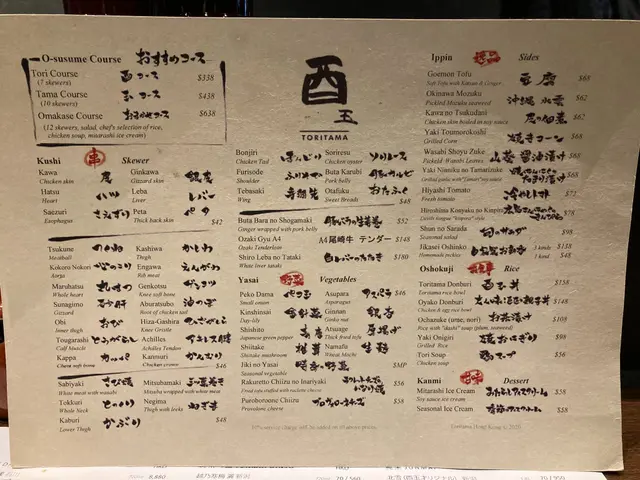 O-susume Course おすすめコース
Tori Course 酉コース $338
(7 skewers)
Tama Course 玉コース $438
(10 skewers)
Omakase Course おまかせコース $638
(12 skewers, salad, chef's selection of rice,
chicken soup, mitarashi ice cream)
Kushi 串 Skewer
Kawa 皮 Ginkawa 銀皮
Chicken skin Gizzard skin
Hatsu ハツ Leba レバー
Heart Liver
Saezuri さえずり Peta ペタ $42
Esophagus Thick back skin
Tsukune つくね Kashiwa かしわ
Meatball Thigh
Kokoro Nokori 心のこり Engawa えんがわ
Aorta Rib meat
Maruhatsu 丸はつ Genkotsu げんコツ
Whole heart Knee soft bone
Sunagimo 砂肝 Aburatsubo 油つぼ
Gizzard Root of chicken tail
Obi おび Hiza-Gashira ひざがしら
Inner thigh Knee Cartilage
Tougarashi とうがらし Achilles アキレス腱
Calf Muscle Achilles Tendon
Kappa カッパ Kanmuri かんむり $46
Chest soft bone Chicken crown
Sabiyaki さび焼 Mitsubamaki 三つ葉巻き
White meat with wasabi Mitsuba wrapped with white meat
Tokkuri とっくり Negima ねぎま
Whole Neck Thigh with leeks
Kaburi かぶり $48
Lower Thigh
酉
玉
TORITAMA
Bonjiri ぼんじり Soriresu ソリレース
Chicken Tail Chicken oyster
Furisode ふりそで Buta Karubi 豚カルビ
Shoulder Pork Karubi
Tebasaki 手羽先 Otafuku おたふく $48
Wing Sweet Breads
Buta Bara no Shogamaki 豚バラの生姜巻 $52
Ginger wrapped with pork belly
Ozaki Gyu A4 A4尾崎牛 テンダー $148
Ozaki Tenderloin
Shiro Leba no Tataki 白レバーのたたき $180
White liver tataki
Yasai 野菜 Vegetables
Peko Dama ペコ玉 Asupara アスパラ $46
Small onion Asparagus
Kinshinsai 金針菜 Ginnan 銀杏
Day-lily Gonka nut
Shishito 青唐 Atsuage 厚揚げ
Japanese green pepper Thick fried tofu
Shiitake 椎茸 Namafu 生麩
Shiitake mushroom Wheat Mochi
Jiki no Yasai 時季の野菜 $MP
Seasonal vegetable
Rakuretto Chiizu no Inariyaki ラクレットチーズのいなり焼 $56
Fried tofu stuffed with raclette cheese
Puroboroone Chiizu プロヴォローネチーズ $58
Provolone cheese
Ippin 逸品 Sides
Goemon Tofu 豆腐 $68
Soft Tofu with Katsuo & Ginger
Okinawa Mozuku 沖縄 水雲 $62
Pickled Mozuku seaweed
Kawa no Tsukudani 皮の佃煮 $62
Chicken skin boiled in soy sauce
Yaki Toumorokoshi 焼きコーン $68
Grilled Corn
Wasabi Shoyu Zuke 山葵 醤油漬け $68
Pickled Wasabi Leaves
Yaki Ninniku no Tamarizuke $68
Hiyashi Tomato 冷やしトマト $72
Fresh tomato
Hiroshima Konyaku no Kinpira $78
Shun no Sarada 旬のサラダ $98
Seasonal salad
Jikasei Oshinko 自家製お新香 3 kinds $138
Homemade pickles 1 kind $48
Oshokuji お食事 Rice
Toritama Donburi 酉玉丼 $158
Chicken Bowl
Oyako Donburi とんわり親子丼 $148
Chicken & egg rice bowl
Ochazuke (ume, nori) お茶漬け $108
Rice with "dashi" soup (plum, seaweed)
Yaki Onigiri 焼おにぎり $98
Grilled Rice
Tori Soup 鶏スープ $56
Chicken soup
Kanmi 甘味 Dessert
Mitarashi Ice Cream みたらしアイスクリーム $58
Soy sauce ice cream
Seasonal Ice Cream 季節アイスクリーム $58
10% service charge will be added on all above prices
Toritama Hong Kong © 2020